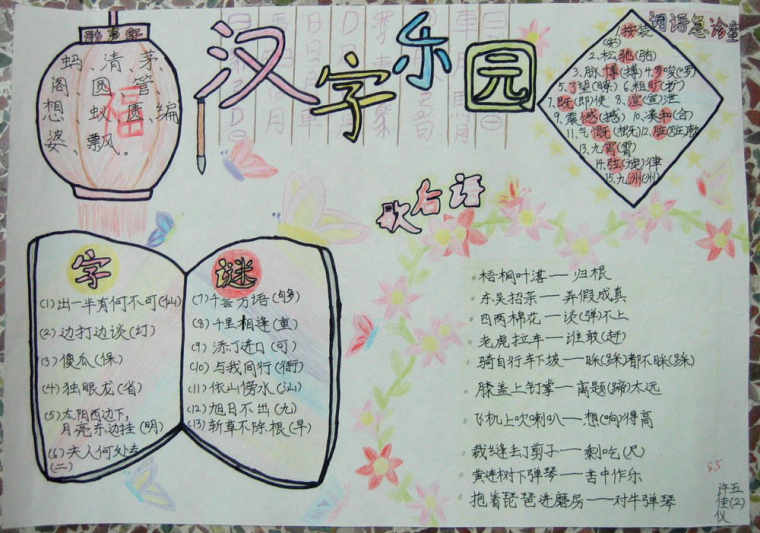 汉字乐园
蚂、清、茅、
阁、圆、管、
想、蚁、圆、编、
婆、飘。
福
词语急诊室
2.松驰(弛)
3.脉博(搏)4.罗唆(啰)
7.既(即)使 8.渲(宣)泄
9.震感(撼)
11.气慨(概)
13.九宵(霄)
15.九洲(州)
歇后语
梧桐叶落——归根
东吴招亲——弄假成真
四两棉花——谈(弹)不上
老虎拉车——谁敢(赶)
骑自行车下坡——睬(踩)都不睬(踩)
膝盖上钉掌——离题(蹄)太远
飞机上吹喇叭——想(响)得高
裁缝丢了剪子——剩吃(尺)
黄连树下弹琴——苦中作乐
抱着琵琶进磨房——对牛弹琴
字谜
(1)出一半有何不可(仙)
(2)边打边谈(订)
(3)傻瓜(保)
(4)独眼龙(省)
(5)太阳西边下,
月亮东边挂(明)
(6)夫人何处去
(二)
(7)千言万语(够)
(8)千里相逢(重)
(9)添丁进口(可)
(10)与我同行(衙)
(11)依山傍水(汕)
(12)旭日不出(九)
(13)斩草不除根(早)
五(2)
许佳仪